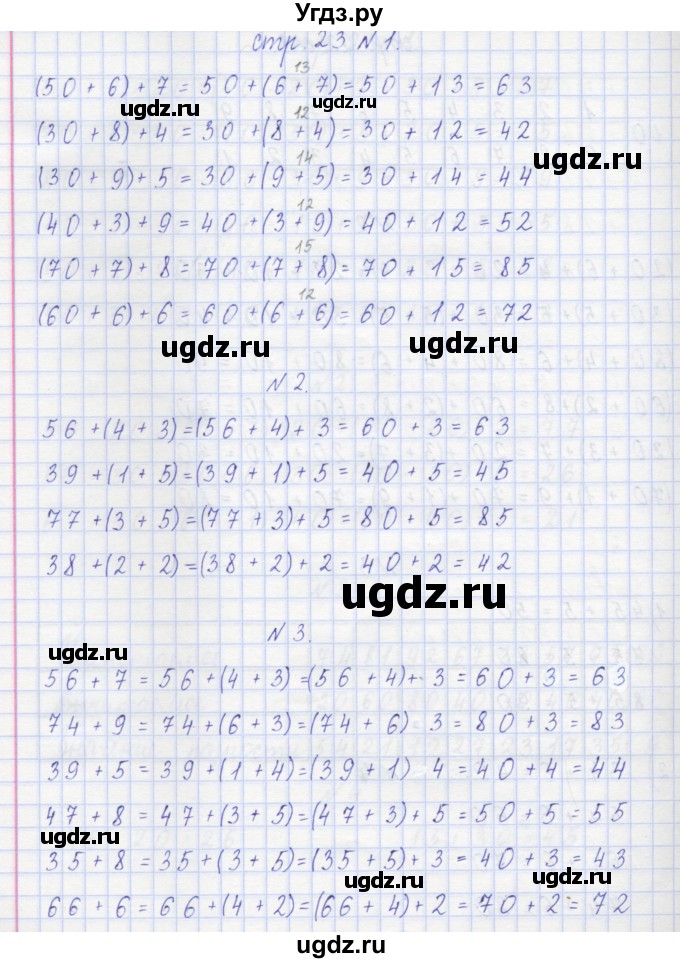 Угдз.ру
стр. 23 № 1.
13
(50 + 6) + 7 = 50 + (6 + 7) = 50 + 13 = 63
ugdz.ru ugdz.ru
12
(30 + 8) + 4 = 30 + (8 + 4) = 30 + 12 = 42
ugdz.ru
14
(30 + 9) + 5 = 30 + (9 + 5) = 30 + 14 = 44
12
(40 + 3) + 9 = 40 + (3 + 9) = 40 + 12 = 52
15
(70 + 7) + 8 = 70 + (7 + 8) = 70 + 15 = 85
12
(60 + 6) + 6 = 60 + (6 + 6) = 60 + 12 = 72
ugdz.ru ugdz.ru
№ 2.
56 + (4 + 3) = (56 + 4) + 3 = 60 + 3 = 63
39 + (1 + 5) = (39 + 1) + 5 = 40 + 5 = 45
77 + (3 + 5) = (77 + 3) + 5 = 80 + 5 = 85
38 + (2 + 2) = (38 + 2) + 2 = 40 + 2 = 42
ugdz.ru
№ 3.
ugdz.ru
56 + 7 = 56 + (4 + 3) = (56 + 4) + 3 = 60 + 3 = 63
74 + 9 = 74 + (6 + 3) = (74 + 6) 3 = 80 + 3 = 83
39 + 5 = 39 + (1 + 4) = (39 + 1) 4 = 40 + 4 = 44
47 + 8 = 47 + (3 + 5) = (47 + 3) + 5 = 50 + 5 = 55
ugdz.ru
35 + 8 = 35 + (3 + 5) = (35 + 5) + 3 = 40 + 3 = 43
ugdz.ru ugdz.ru
66 + 6 = 66 + (4 + 2) = (66 + 4) + 2 = 70 + 2 = 72
ugdz.ru